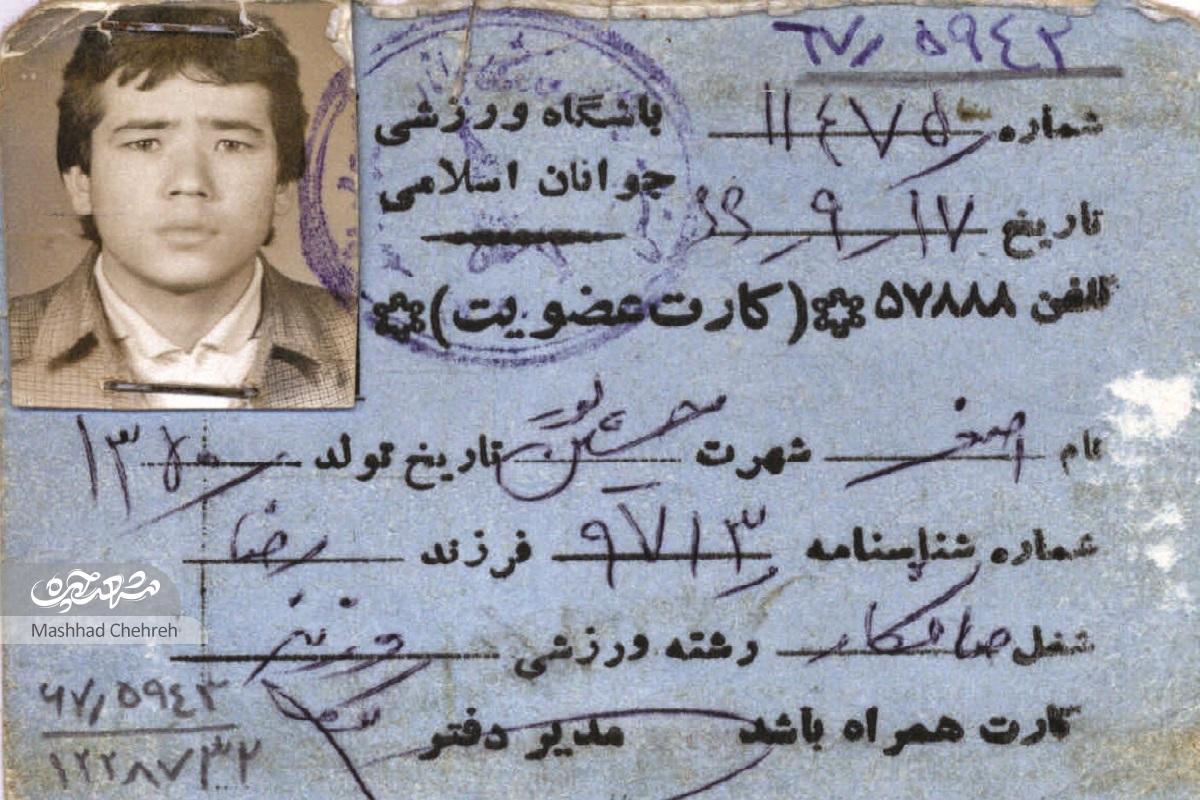 ۶۷٫۵۹۴۳
باشگاه ورزشی
جوانان اسلامی
شماره ۱۱۴۷۵
تاریخ ۱۷ ر ۹ ر
تلفن ۵۷۸۸۸
(کارت عضویت)
نام اصغر شهرت حسین پور تاریخ تولد
شماره شناسنامه ۹۷۱۳ فرزند رضا
شغل صافکار رشته ورزشی
کارت همراه باشد مدیر دفتر
۶۷٫۵۹۴۳
۱۲۲۸۷۳۲
مشهد چهره
Mashhad Chehreh